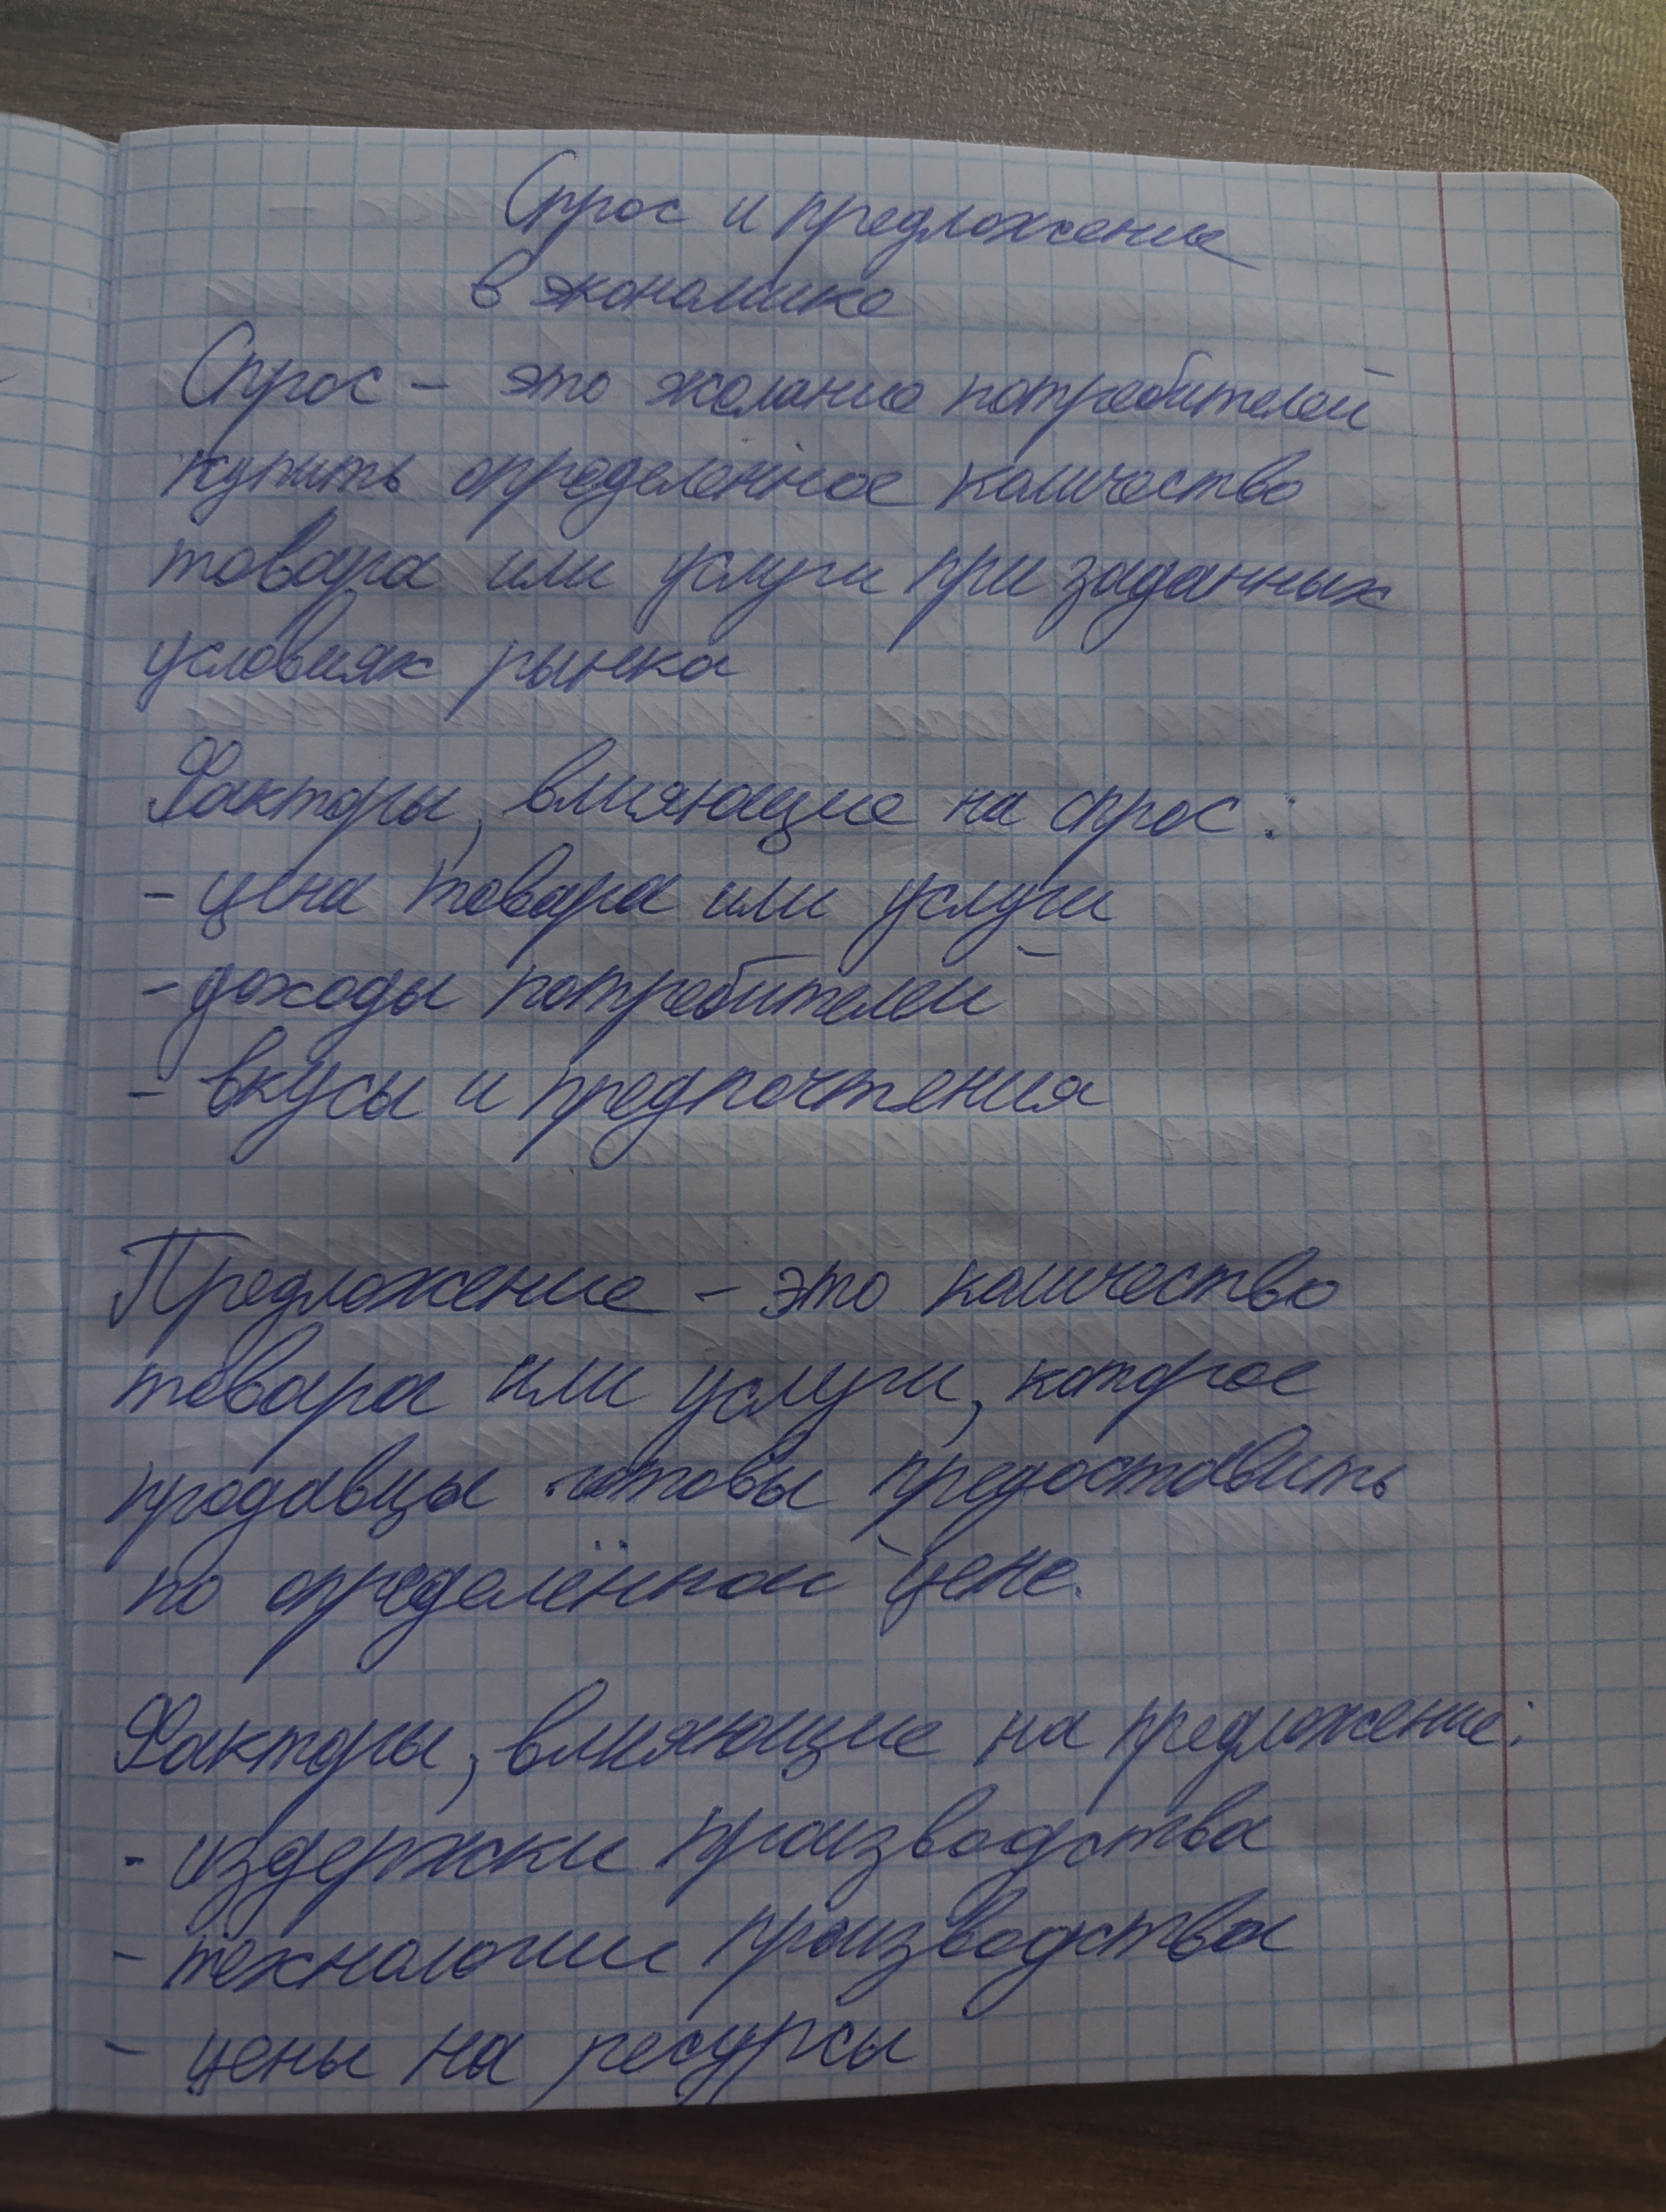 Спрос и предложение
в экономике
Спрос – это желание потребителей
купить определённое количество
товара или услуги при заданных
условиях рынка
Факторы, влияющие на спрос:
- цена товара или услуги
- доходы потребителей
- вкусы и предпочтения
Предложение – это количество
товара или услуги, которое
продавцы готовы предоставить
по определённой цене.
Факторы, влияющие на предложение:
- издержки производства
- технологии производства
- цены на ресурсы